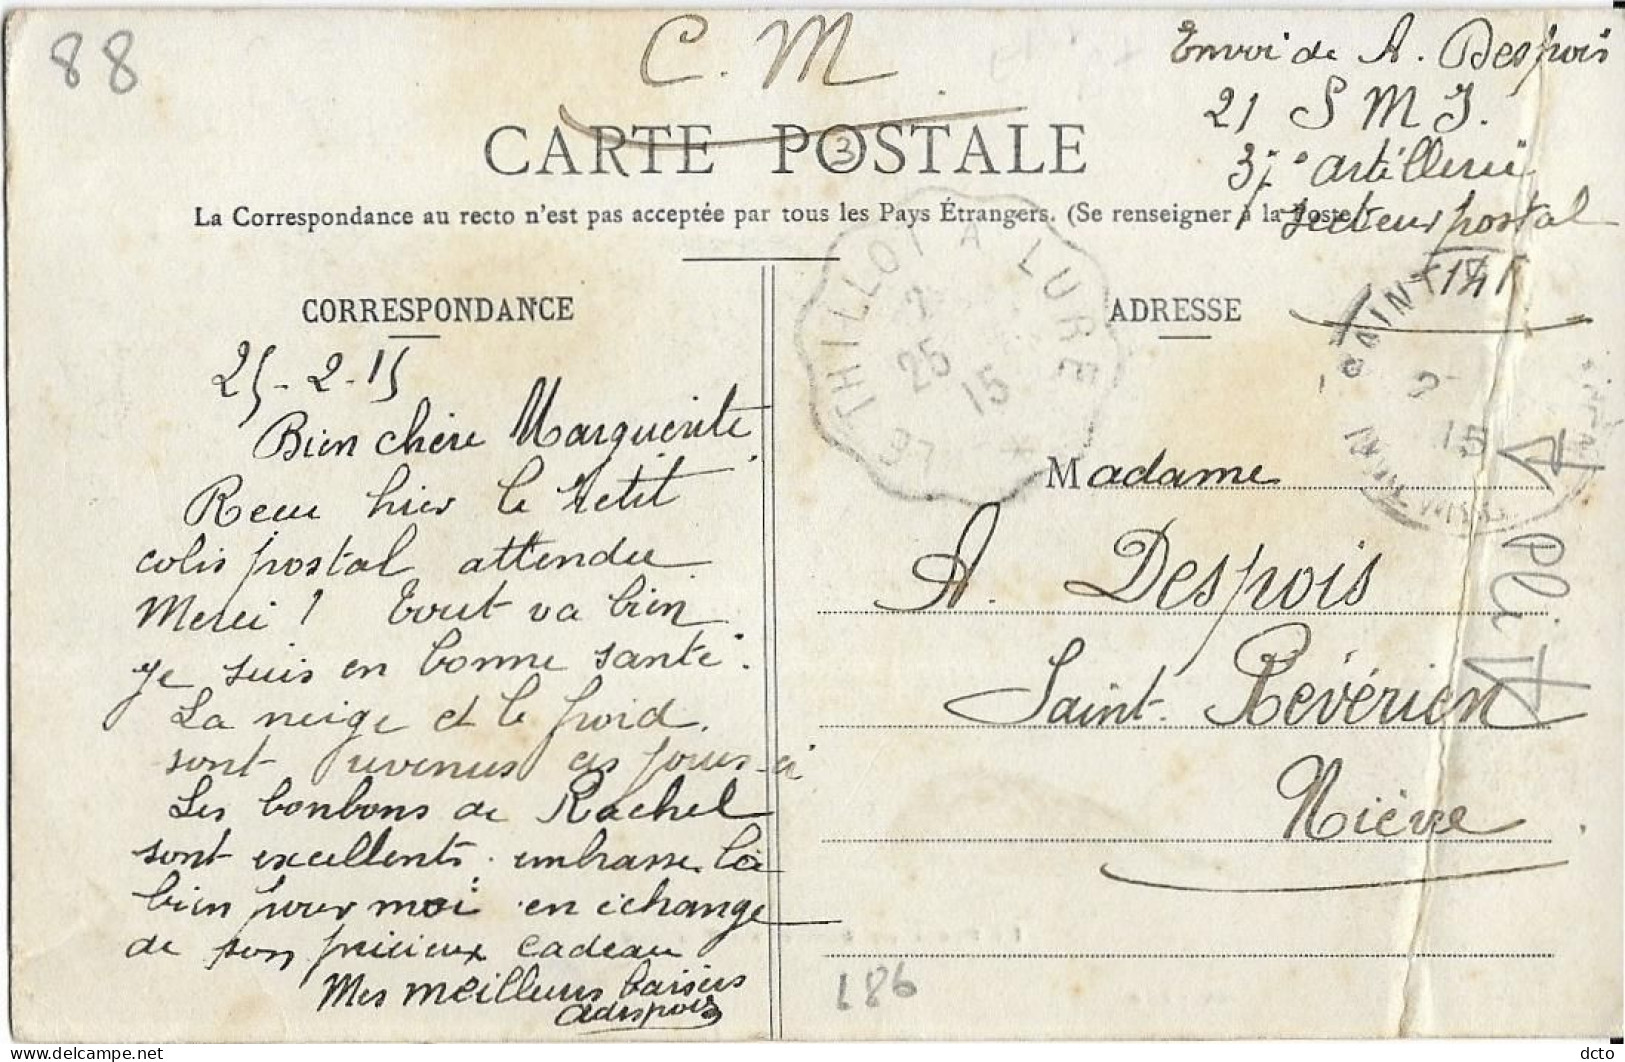 88
C. M
Envoi de A. Despois
21 S M I.
37e artillerie
secteur postal
141
CARTE POSTALE
3
La Correspondance au recto n'est pas acceptée par tous les Pays Étrangers. (Se renseigner à la Poste
CORRESPONDANCE
25-2-15
Bien chère Marguerite
Recu hier le petit
colis postal attendu
Merci ! Tout va bien
je suis en bonne santé.
La neige et le froid
sont revenus ces jours-ci
Les bonbons de Rachel
sont excellents. embrasse la
bien pour moi en échange
de son précieux cadeau
Mes meilleurs baisers
adespois
LE THILLOT A LURE
2
25
15
ADRESSE
SAINT
2
15
Madame
A. Despois
Saint-Révérien
Nièvre
186
dcto